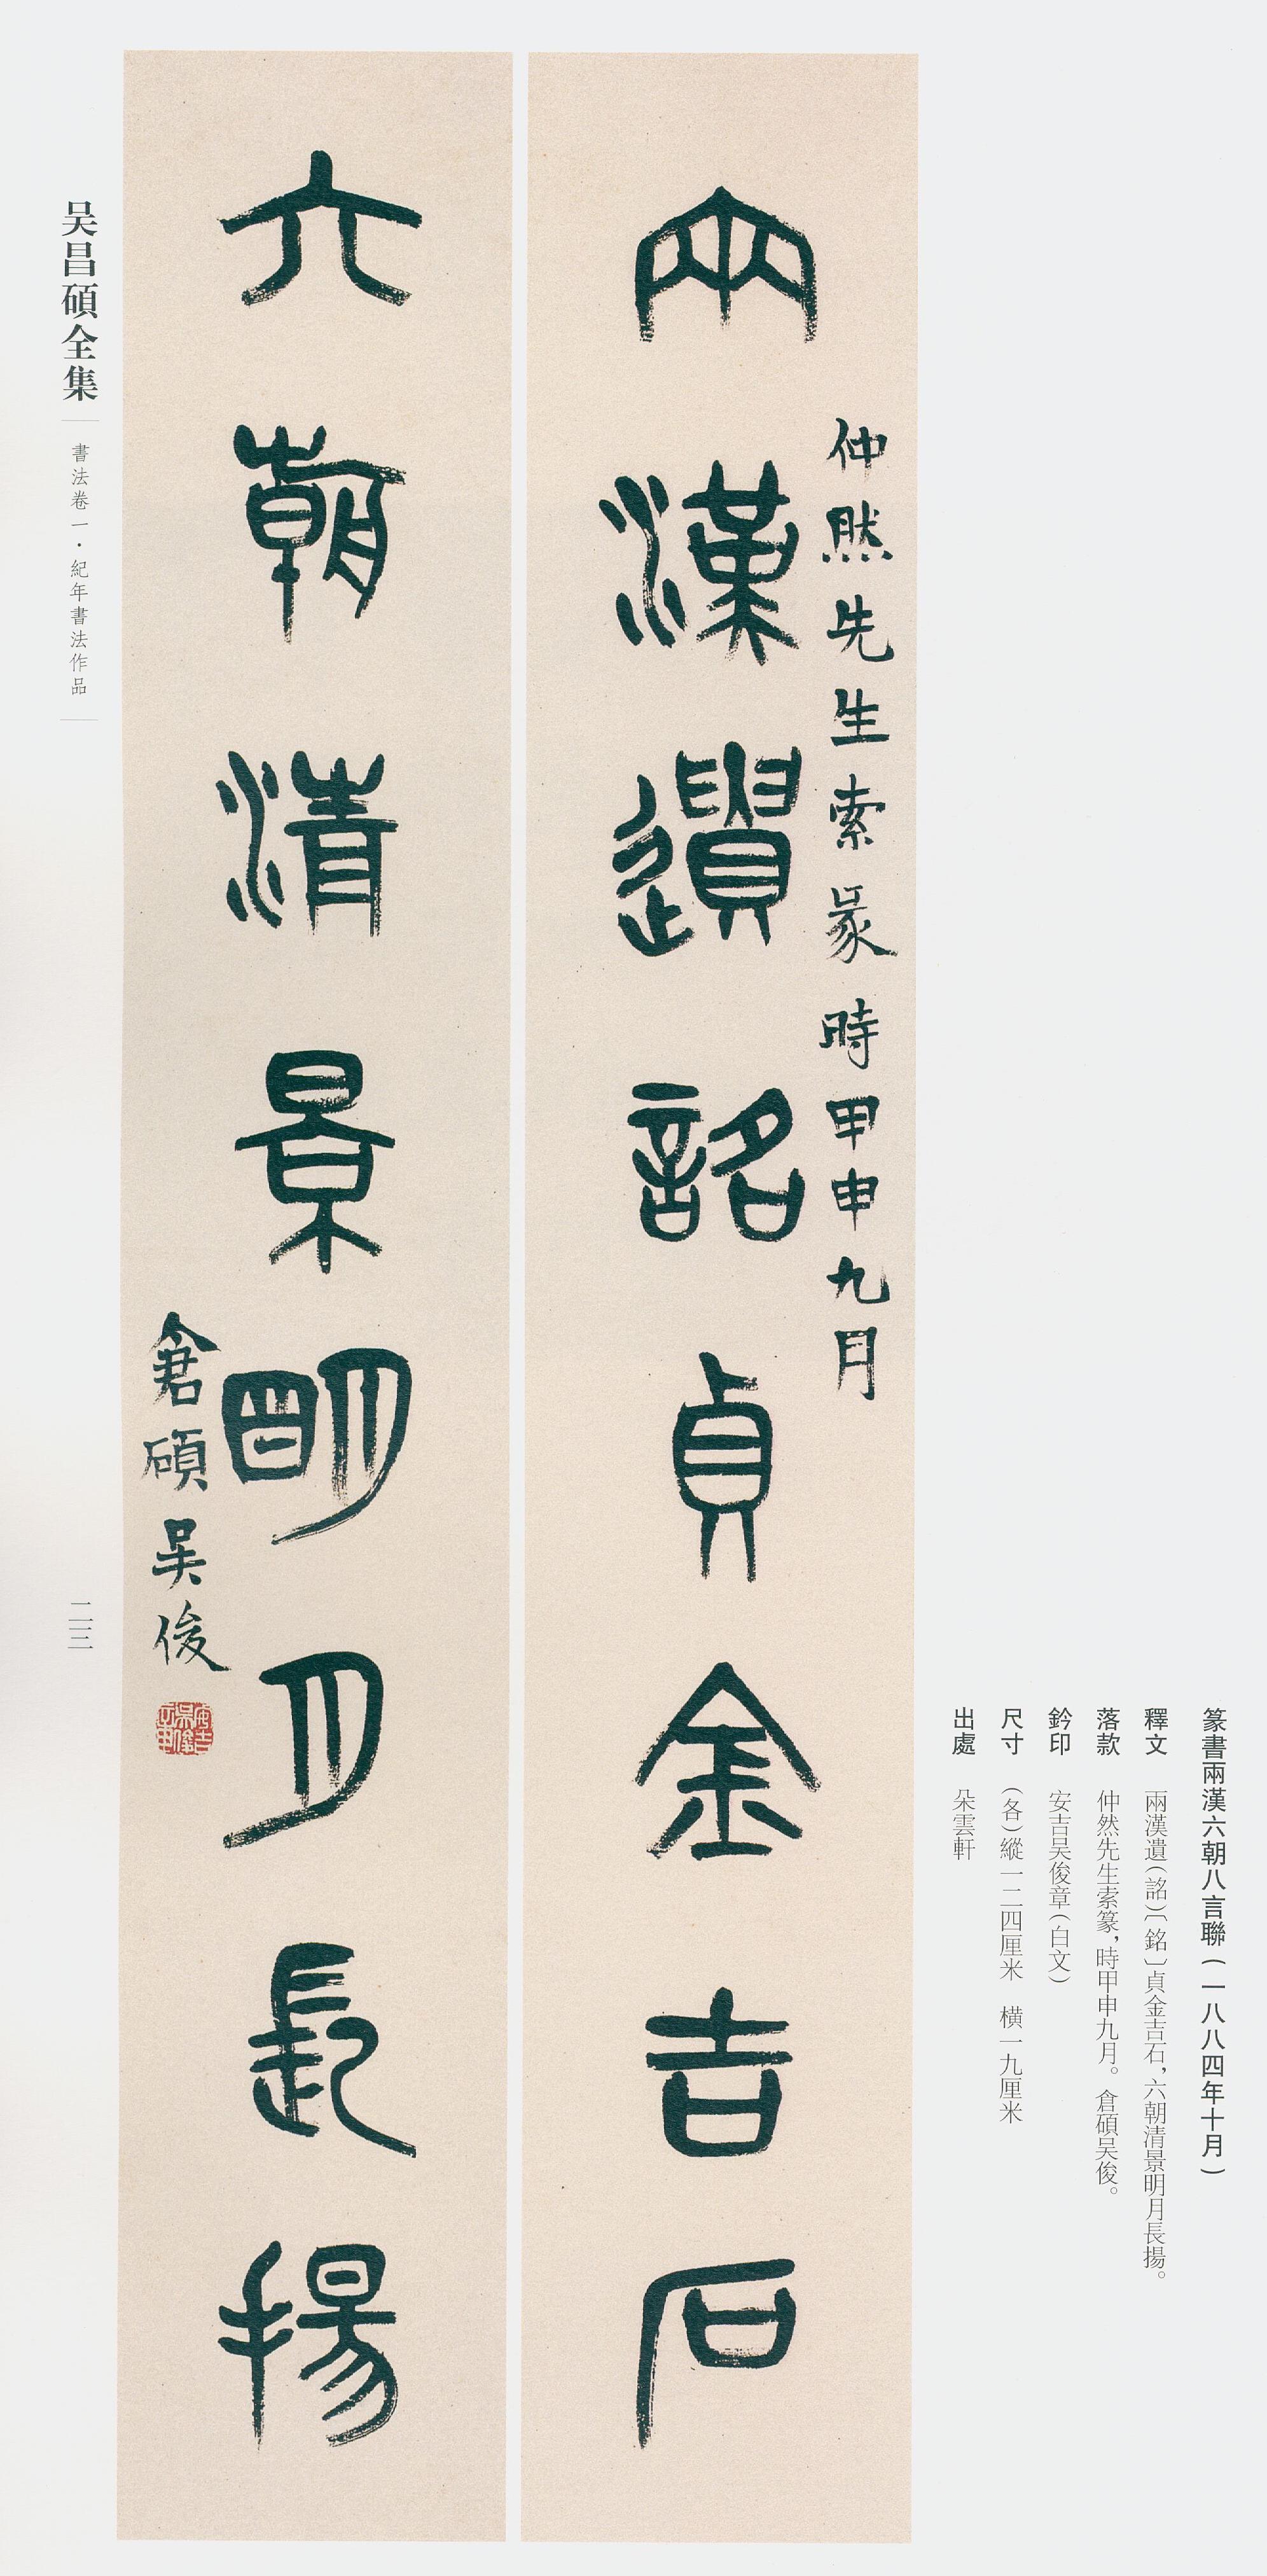 篆書兩漢六朝八言聯(一八八四年十月)
釋文 兩漢遺(詺)〔銘〕貞金吉石,六朝清景明月長揚。
落款 仲然先生索篆,時甲申九月。倉碩吴俊。
鈐印 安吉吴俊章(白文)
尺寸 (各)縱一二四厘米 横一九厘米
出處 朵雲軒
仲然先生索篆時甲申九月
兩漢遺詺貞金吉石
六朝清景明月長揚
倉碩吴俊
安吉吴俊章
吴昌碩全集
書法卷一·紀年書法作品
二三